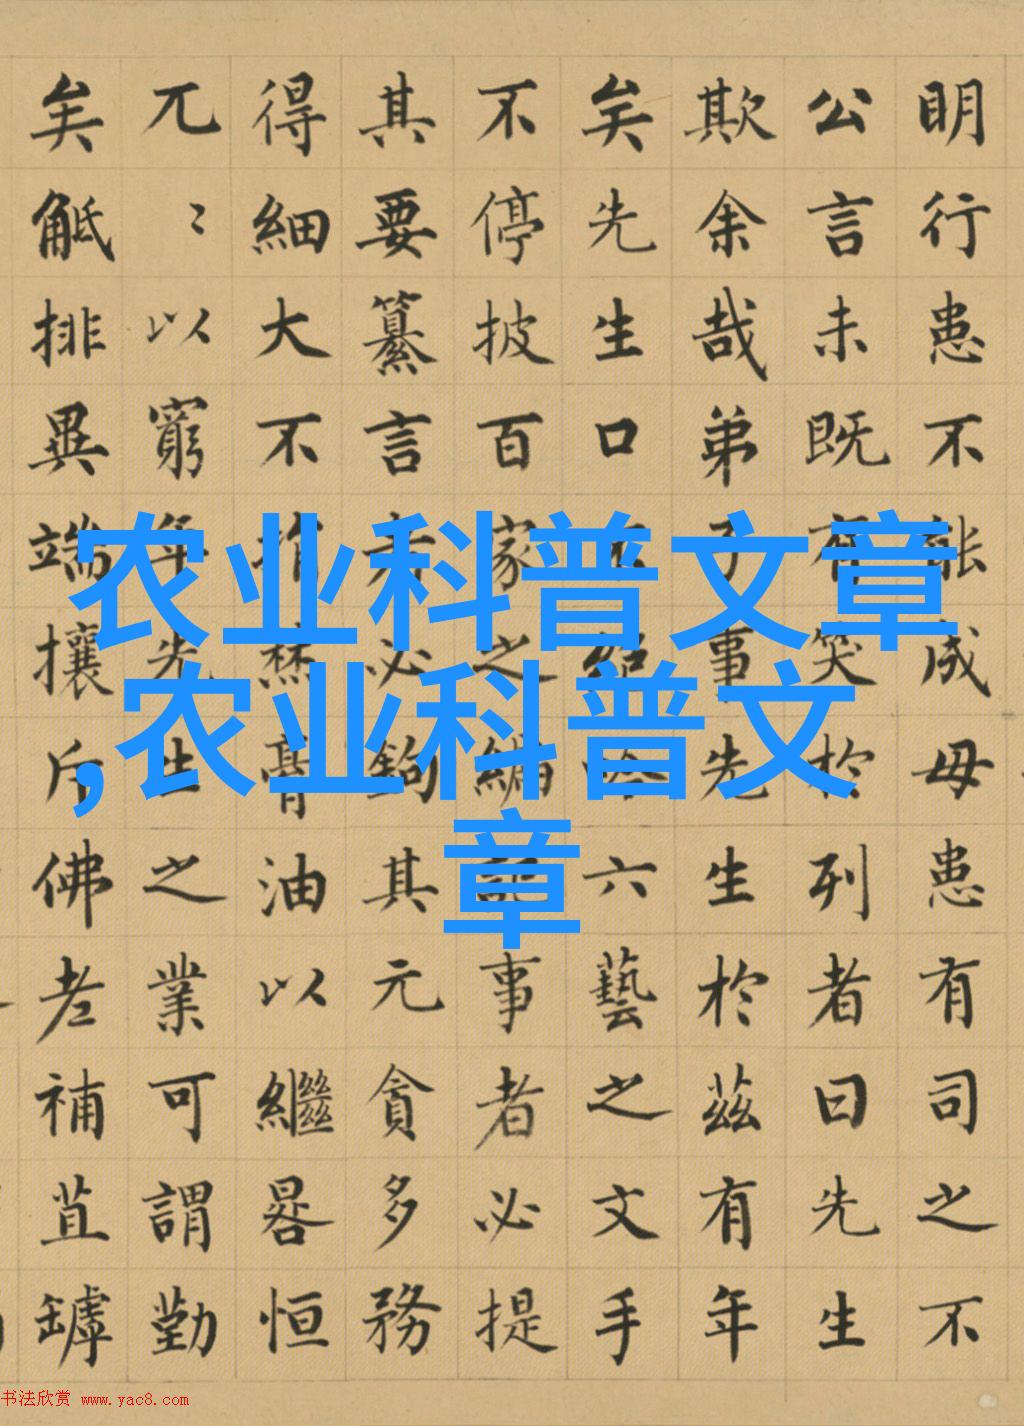 明行患不能成毋患有司之不
公言未既有笑於列者曰先生
欺余哉弟子事先生於茲有年
矣先生口不絕吟六藝之文手
不停披百家之編記事者必提
其要纂言者必鉤其元貪多務
得細大不捐焚膏油以繼晷恒
兀〻以窮年先生之業可謂勤
矣觝排異端攘斥佛老補苴罅
农业科普文章
,农业科普文
章
书法欣赏 www.yac8.com